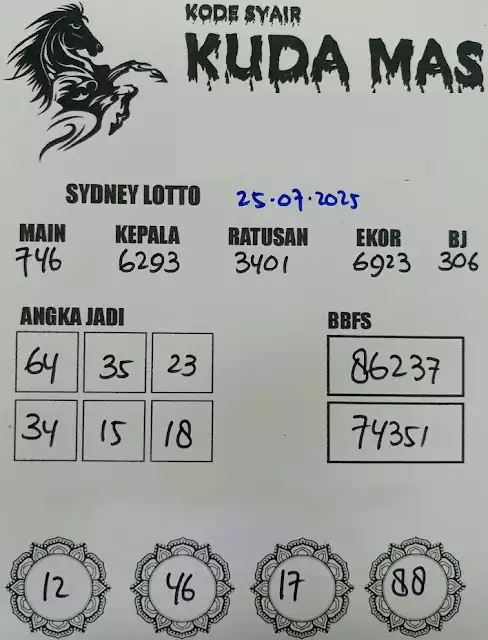 KODE SYAIR
KUDA MAS
SYDNEY LOTTO 25.07.2025
MAIN KEPALA RATUSAN EKOR BJ
746 6293 3401 6923 306
ANGKA JADI BBFS
64 35 23 86237
34 15 18 74351
12 46 17 88